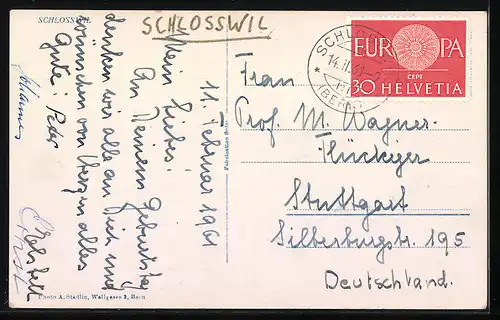 SCHLOSSWIL
SCHLOSSWIL
11. Februar 1961
Mein Liebes!
An Deinem Geburtstag
denken wir alle an Dich und
wünschen von Herzen alles
Gute! Peter
Johannes
Ernst
Photo A. Stadlin, Wallgasse 2, Bern
EUROPA
CEPT
30 HELVETIA
(BERN)
Frau
Prof. M. Wagner-
Flückiger
Stuttgart
Silberburgstr. 195
Deutschland.